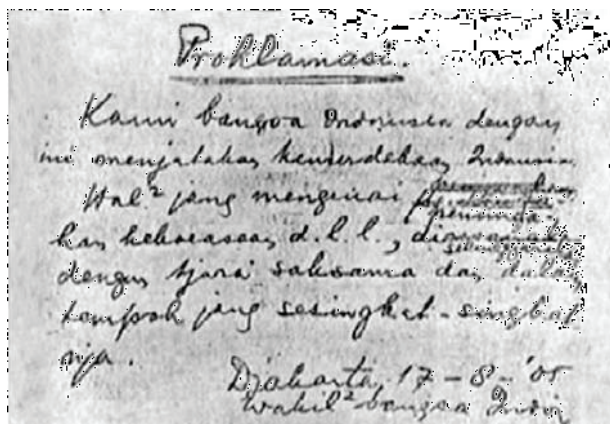 Proklamasi.
Kami bangsa Indonesia dengan
ini menjatakan kemerdekaan Indonesia
Hal² jang mengenai
peminda-
han kekoeasaan, d.l.l.,
dengan tjara saksama dan dalam
tempoh jang sesingkat-singkat
nja.
Djakarta, 17 - 8 - '05
Wakil² bangsa Indon